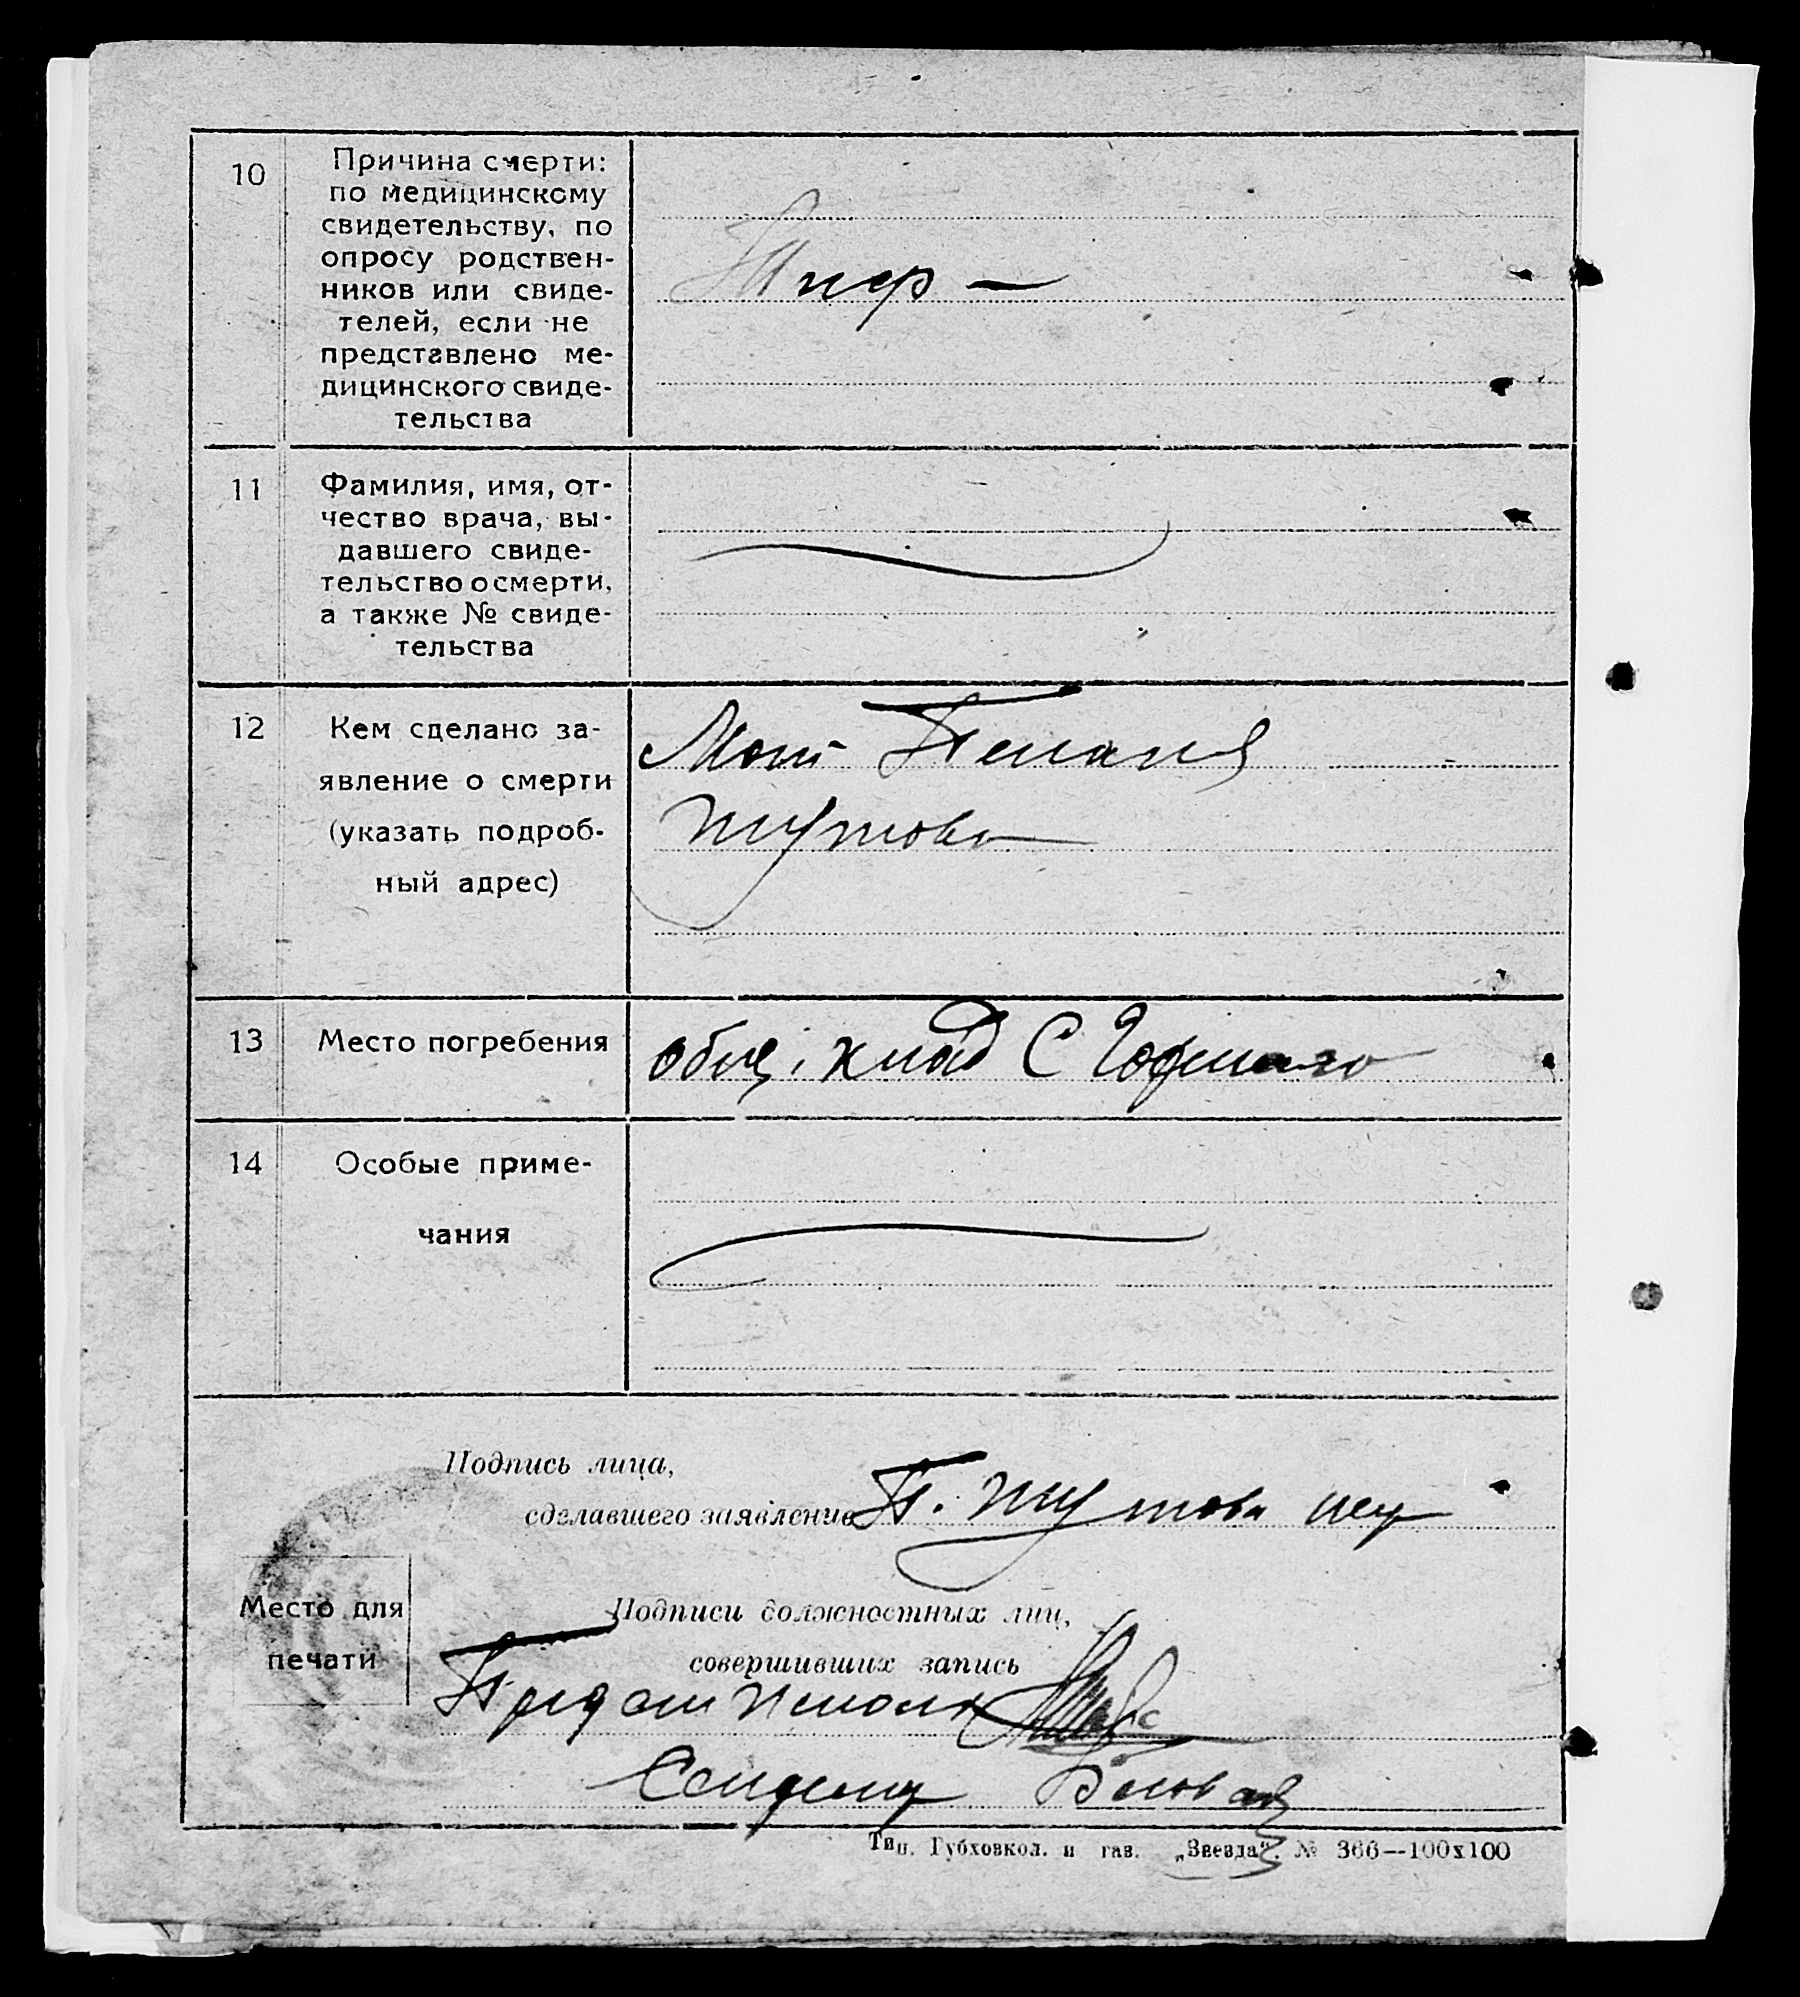 10
Причина смерти:
по медицинскому
свидетельству, по
опросу родствен-
ников или свиде-
телей, если не
представлено ме-
дицинского свиде-
тельства
11
Фамилия, имя, от-
чество врача, вы-
давшего свиде-
тельство о смерти,
а также № свиде-
тельства
12
Кем сделано за-
явление о смерти
(указать подроб-
ный адрес)
Мат Пелагея
Шутова
13
Место погребения
общ. клад С
14
Особые приме-
чания
Подпись лица,
сделавшего заявление П. Шутова негр
Место для
печати
Подписи должностных лиц,
совершивших запись
Предст
Секрет
Тип. Губховкол. и газ. „Звезда“. № 366—100х100